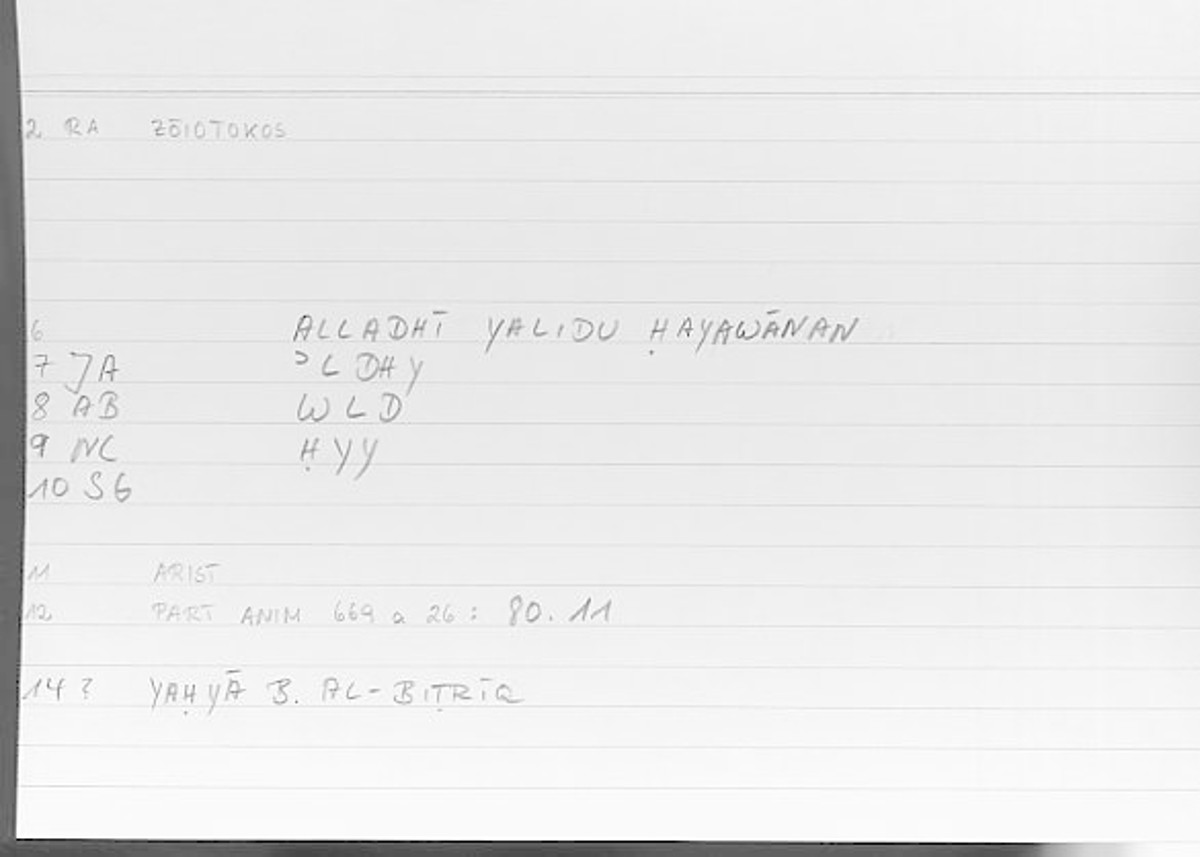 2 RA ZŌIOTOKOS
6 ALLADHĪ YALIDU ḤAYAWĀNAN
7 JA ᵓLDHY
8 AB WLD
9 NC ḤYY
10 SG
11 ARIST
12 PART ANIM 669 a 26 : 80.11
14 ? YAḤYĀ B. AL-BIṬRĪQ